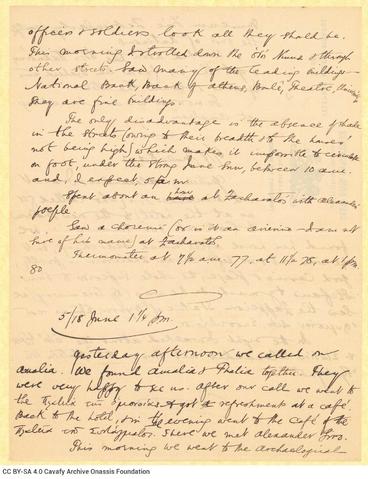 officers & soldiers look all they should be.
This morning I strolled down the ὁδὸς & through
other streets. Saw many of the leading buildings —
National Bank, Bank of Athens, Boulè, Theatre, University
They are fine buildings.
The only disadvantage is the absence of shade
in the streets (owing to their breadth & to the houses
not being high) which makes it impossible to circulate
on foot, under the strong June sun, between 10 a.m.
and, I expect, 5 p.m.
Spent about an hour at Zacharatos with Alexandrian
people
Saw a (or is it an — I am not
sure of his name) at Zacharatos.
Thermometer at 7½ a.m. 77, at 11½ 78, at 1 p.m.
80
5/18 June 1¼ p.m.
Yesterday afternoon we called on
Amalia. We found Amalia & Thalia together. They
were very happy to see us. After our call we went to
the & got refreshments at a café.
Back to the hotel, & in the evening went to the Café of the
There we met Alexander
This morning we went to the Archaeological
CC BY-SA 4.0 Cavafy Archive Onassis Foundation